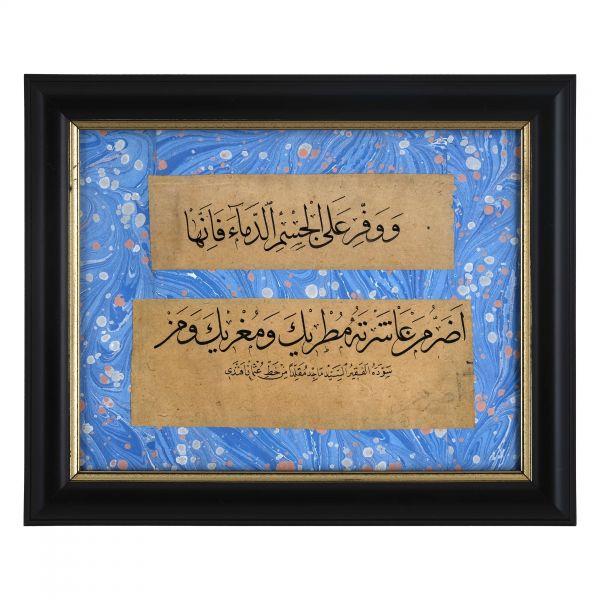 وَوَفِّرْ عَلَى الْجِسْمِ الدِّمَاءَ فَإِنَّهَا
اَضَرُّ مَنْ عَاشَرْتَهُ مُطْرِيكَ وَمُغْرِيكَ وَمَنْ
سَوَّدَهُ الفَقِيرُ السَّيِّد مَاجِد مُقَلِّدًا مِنْ خَطِّ عُثْمَان اَفَنْدِى